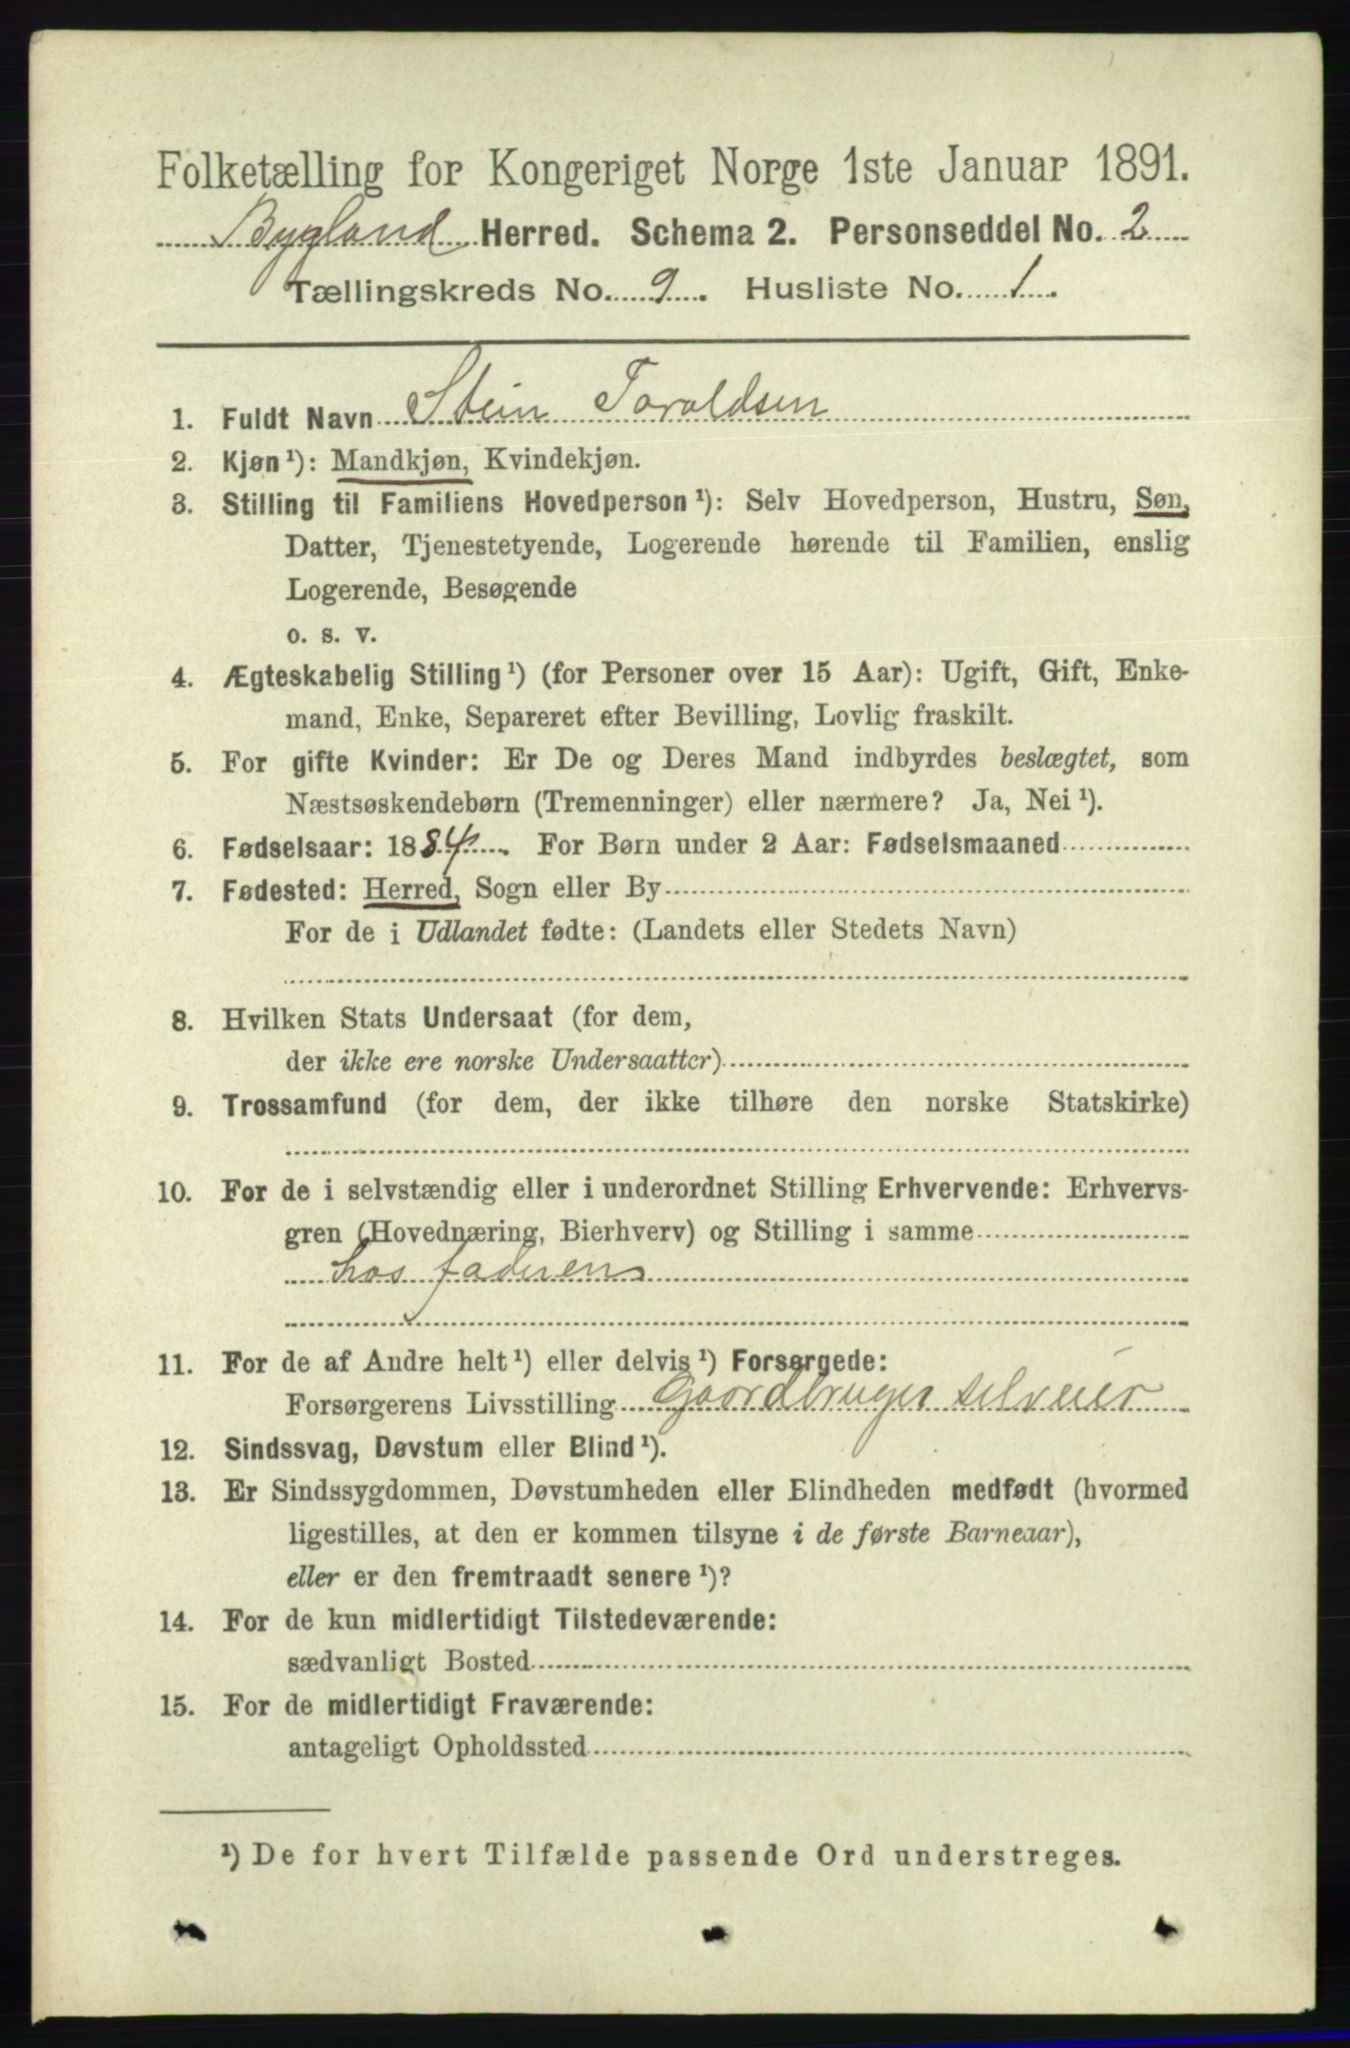 Folketælling for Kongeriget Norge 1ste Januar 1891.
Bygland Herred. Schema 2. Personseddel No. 2
Tællingskreds No. 9. Husliste No. 1.
1. Fuldt Navn Stein Toroldsen
2. Kjøn¹): Mandkjøn, Kvindekjøn.
3. Stilling til Familiens Hovedperson¹): Selv Hovedperson, Hustru, Søn,
Datter, Tjenestetyende, Logerende hørende til Familien, enslig
Logerende, Besøgende
o. s. v.
4. Ægteskabelig Stilling¹) (for Personer over 15 Aar): Ugift, Gift, Enke-
mand, Enke, Separeret efter Bevilling, Lovlig fraskilt.
5. For gifte Kvinder: Er De og Deres Mand indbyrdes beslægtet, som
Næstsøskendebørn (Tremenninger) eller nærmere? Ja, Nei¹).
6. Fødselsaar: 1884. For Børn under 2 Aar: Fødselsmaaned
7. Fødested: Herred, Sogn eller By
For de i Udlandet fødte: (Landets eller Stedets Navn)
8. Hvilken Stats Undersaat (for dem,
der ikke ere norske Undersaatter)
9. Trossamfund (for dem, der ikke tilhøre den norske Statskirke)
10. For de i selvstændig eller i underordnet Stilling Erhvervende: Erhvervs-
gren (Hovednæring, Bierhverv) og Stilling i samme
hos faderen
11. For de af Andre helt¹) eller delvis¹) Forsørgede:
Forsørgerens Livsstilling Gaardbruger selveier
12. Sindssvag, Døvstum eller Blind¹).
13. Er Sindssygdommen, Døvstumheden eller Blindheden medfødt (hvormed
ligestilles, at den er kommen tilsyne i de første Barneaar),
eller er den fremtraadt senere¹)?
14. For de kun midlertidigt Tilstedeværende:
sædvanligt Bosted
15. For de midlertidigt Fraværende:
antageligt Opholdssted
¹) De for hvert Tilfælde passende Ord understreges.